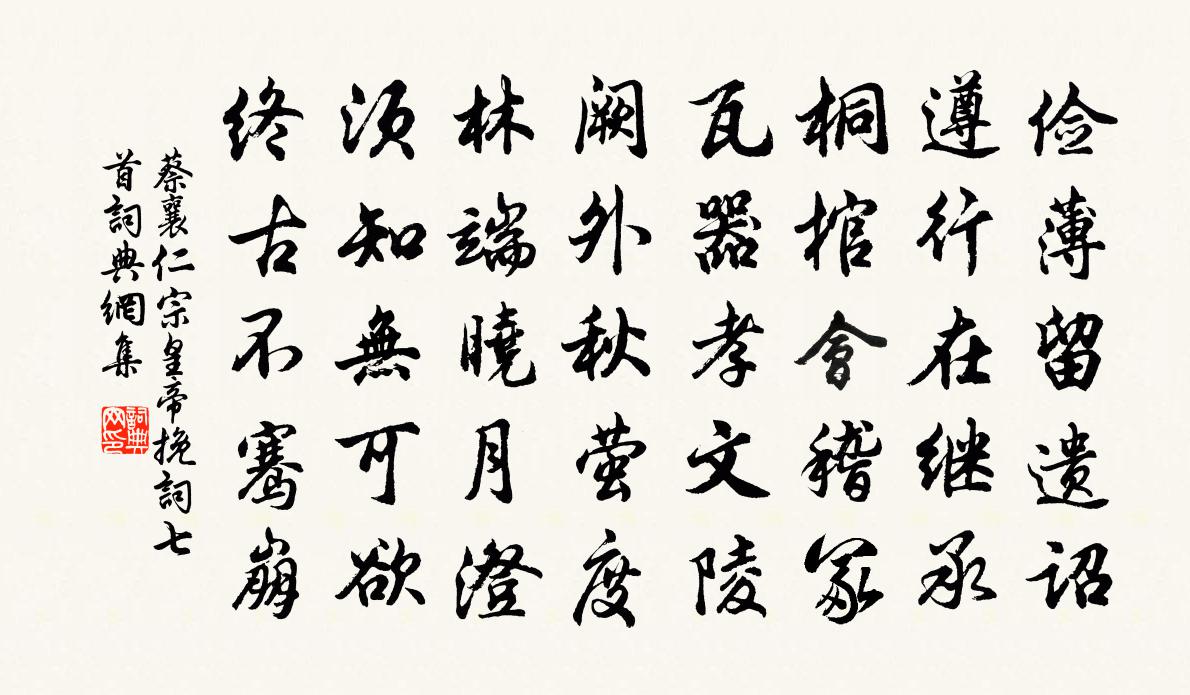 俭薄留遗诏
遵行在继承
桐棺會稽冢
瓦器孝文陵
阙外秋萤度
林端曉月澄
须知無可欲
终古不骞崩
蔡襄仁宗皇帝挽詞七
首詞典網集
詞典
网印